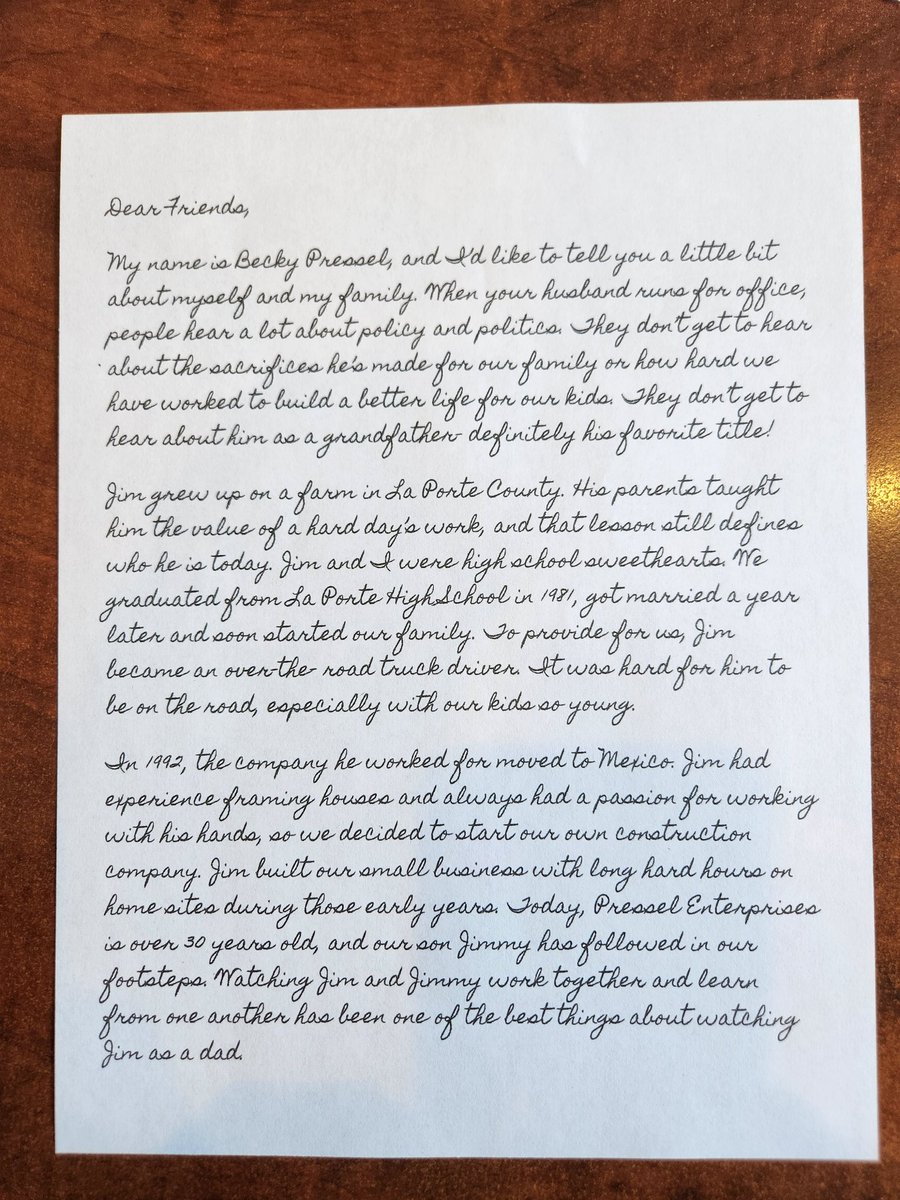 Dear Friends,
My name is Becky Pressel, and I'd like to tell you a little bit
about myself and my family. When your husband runs for office,
people hear a lot about policy and politics. They don't get to hear
about the sacrifices he's made for our family or how hard we
have worked to build a better life for our kids. They don't get to
hear about him as a grandfather- definitely his favorite title!
Jim grew up on a farm in La Porte County. His parents taught
him the value of a hard day's work, and that lesson still defines
who he is today. Jim and I were high school sweethearts. We
graduated from La Porte High School in 1981, got married a year
later and soon started our family. To provide for us, Jim
became an over-the- road truck driver. It was hard for him to
be on the road, especially with our kids so young.
In 1992, the company he worked for moved to Mexico. Jim had
experience framing houses and always had a passion for working
with his hands, so we decided to start our own construction
company. Jim built our small business with long hard hours on
home sites during those early years. Today, Pressel Enterprises
is over 30 years old, and our son Jimmy has followed in our
footsteps. Watching Jim and Jimmy work together and learn
from one another has been one of the best things about watching
Jim as a dad.